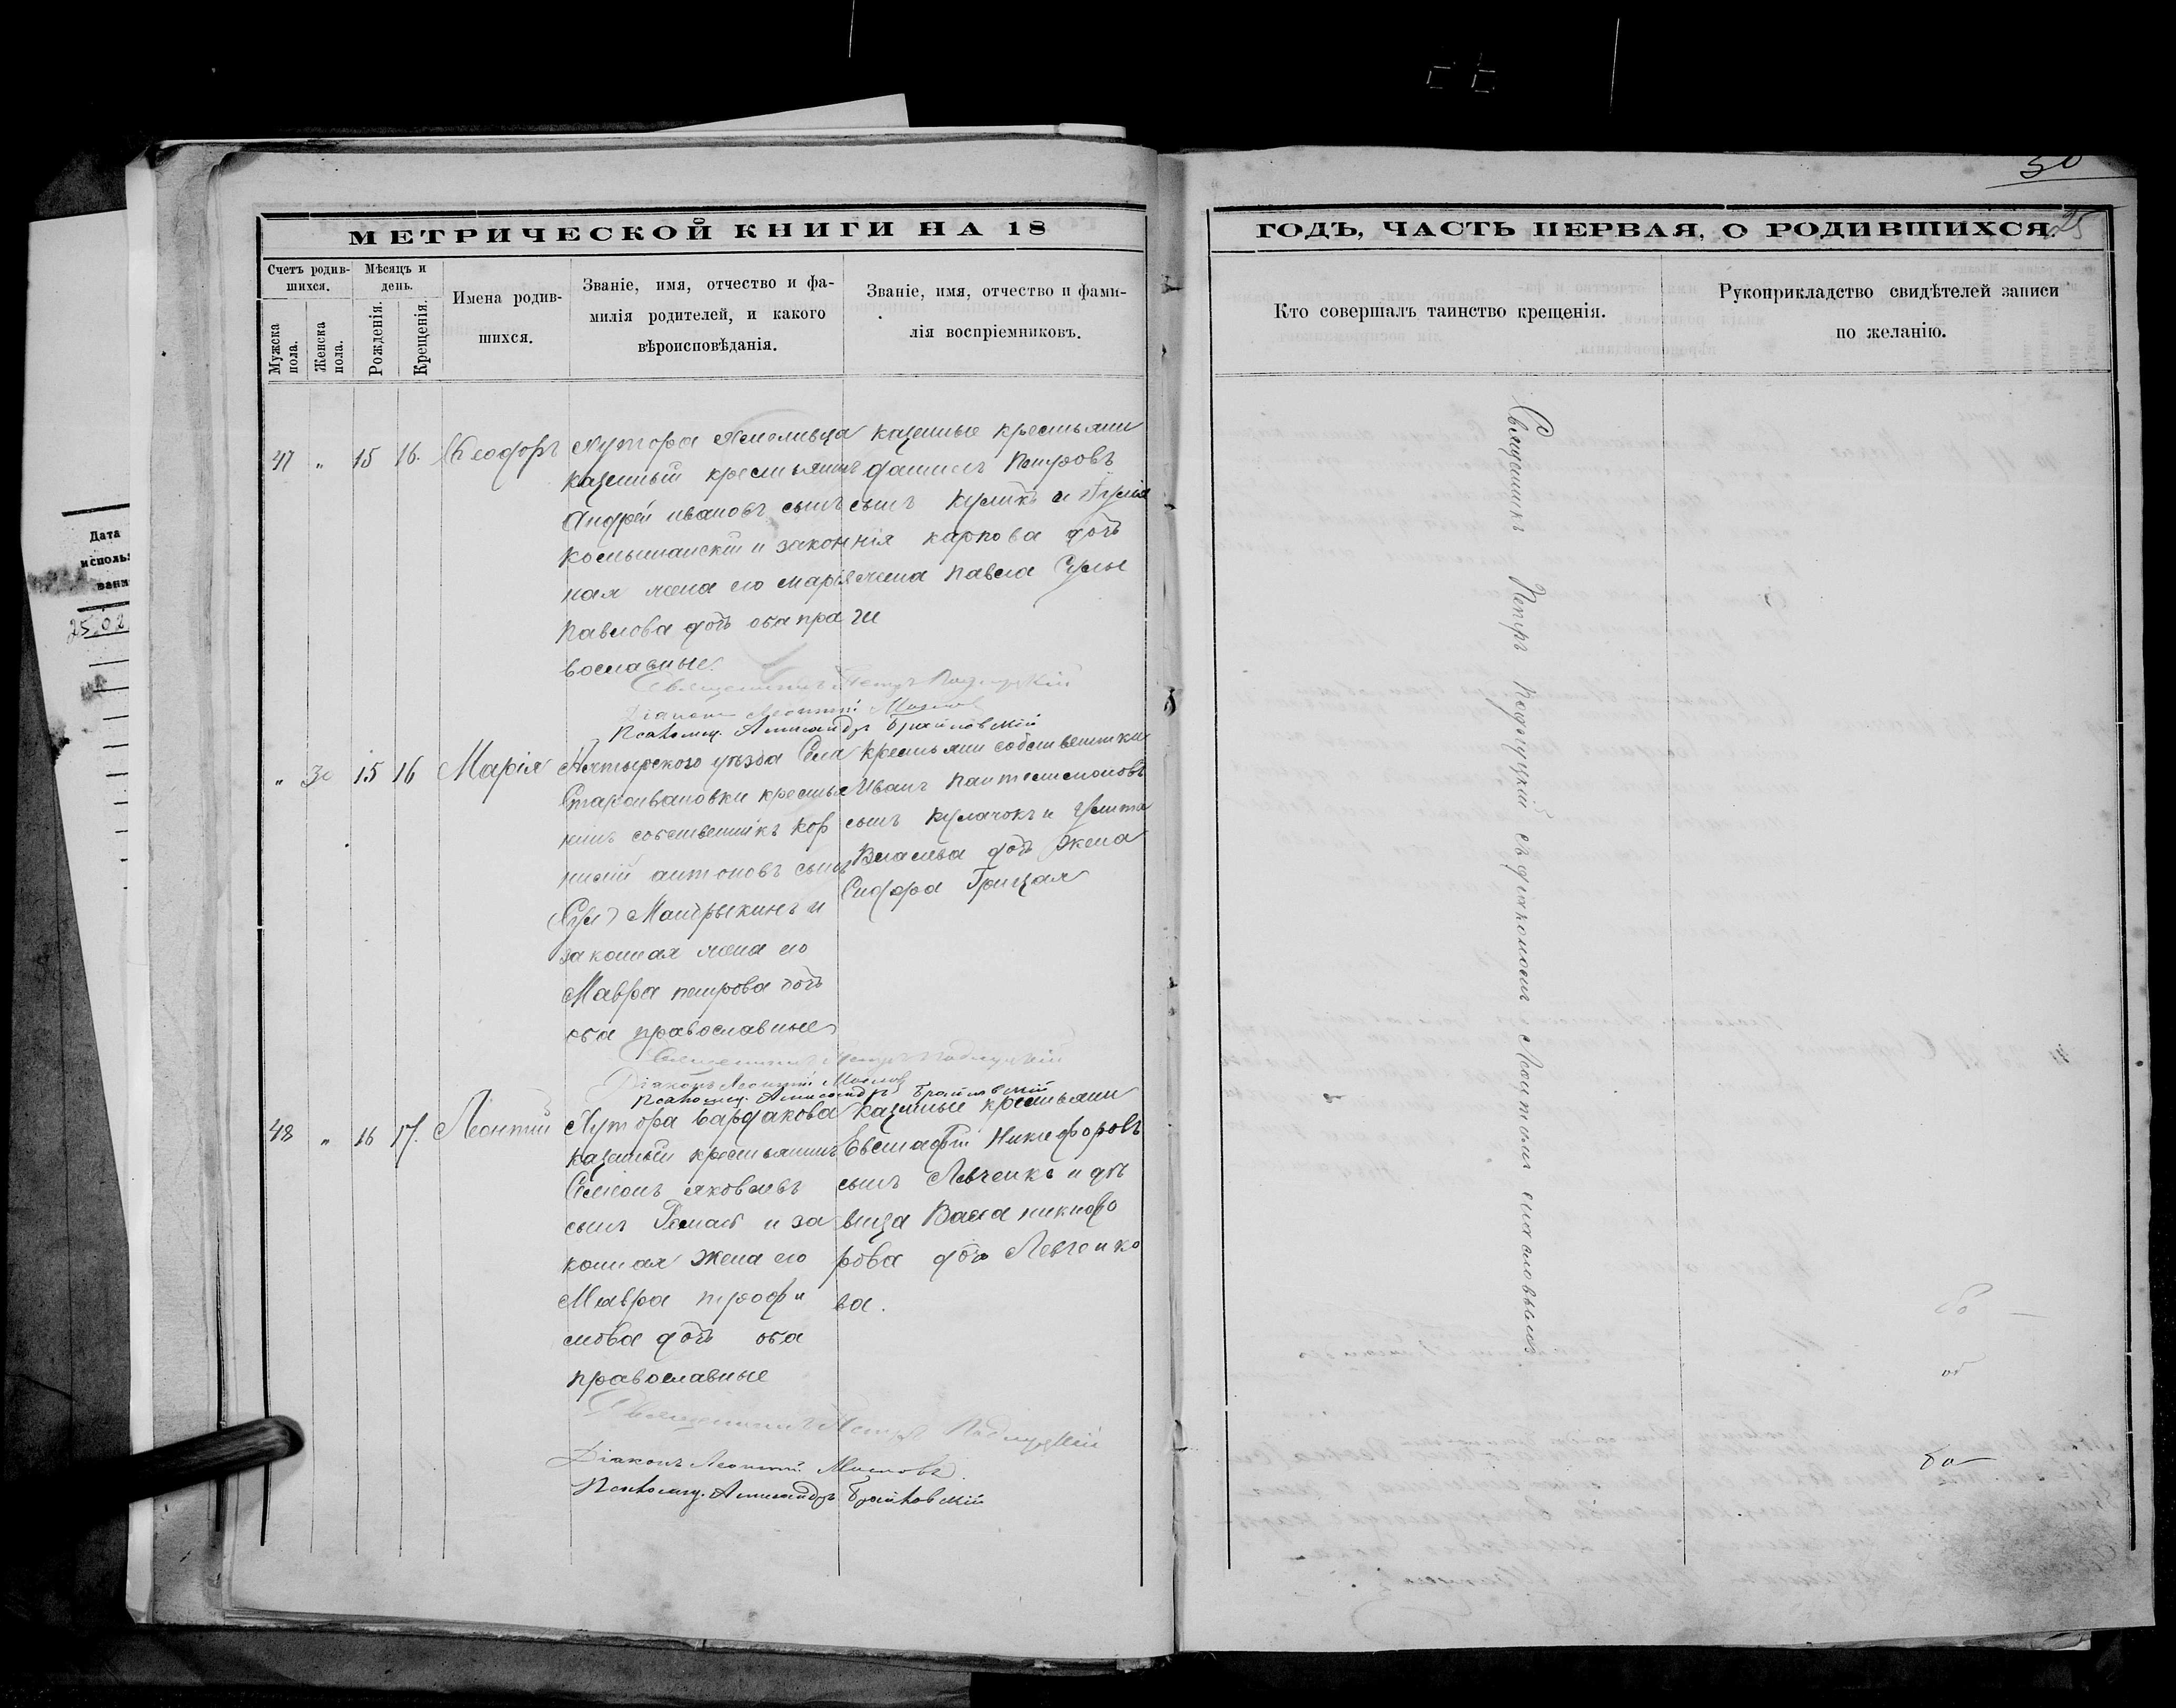 30
25
МЕТРИЧЕСКОЙ КНИГИ НА 18
ГОДЪ, ЧАСТЬ ПЕРВАЯ, О РОДИВШИХСЯ.
Счетъ родив-
шихся.
Мужска
пола.
Женска
пола.
Мѣсяцъ и
день.
Рожденія.
Крещенія.
Имена родив-
шихся.
Званіе, имя, отчество и фа-
милія родителей, и какого
вѣроисповѣданія.
Званіе, имя, отчество и фами-
лія воспріемниковъ.
Кто совершалъ таинство крещенія.
Рукоприкладство свидѣтелей записи
по желанію.
47 " 15 16. Ѳеодоръ
Хутора
казенный крестьянинъ
Андрей ивановъ сынъ
и закон
ная жена его марія
Павлова дочь оба пра
вославные.
казенные крестьяни
Петровъ
сынъ Куликъ и
карпова дочь
жена Павла
Священникъ Петръ Подлуцкій
Діаконъ Леонтій Масловъ
Псаломщ. Александръ Браиловскій
" 30 15 16 Марія
Ахтырского уѣзда Села
Староивановки крестья
нинъ собственникъ Кор
нилій антоновъ сынъ
и
законная жена его
Мавра петрова дочь
оба православные
Крестьяни собственники
Иванъ Пантелимоновъ
сынъ Кулачокъ и Улита
Власіева дочь жена
Сидора Грицая
Священникъ Петръ Подлуцкій
Діаконъ Леонтій Масловъ
Псаломщ. Александръ Браиловскій
48 " 16 17. Леонтій
Хутора Бардакова
казенный крестьянинъ
Симеонъ яковлевъ
сынъ и за
конная жена его
Мавра трофи
мова дочь оба
православные
казенные крестьяни
Евстафій Никифоровъ
сынъ Левченко и дѣ
вица Васса никифо
рова дочь Левченко
ва.
Священникъ Петръ Подлуцкій
Діаконъ Леонтій Масловъ.
Псаломщ. Александръ Браиловскій
Священникъ Петръ Подлуцкій съ діакономъ Леонтіемъ Масловымъ.
Дата
исполь
вани
25.02